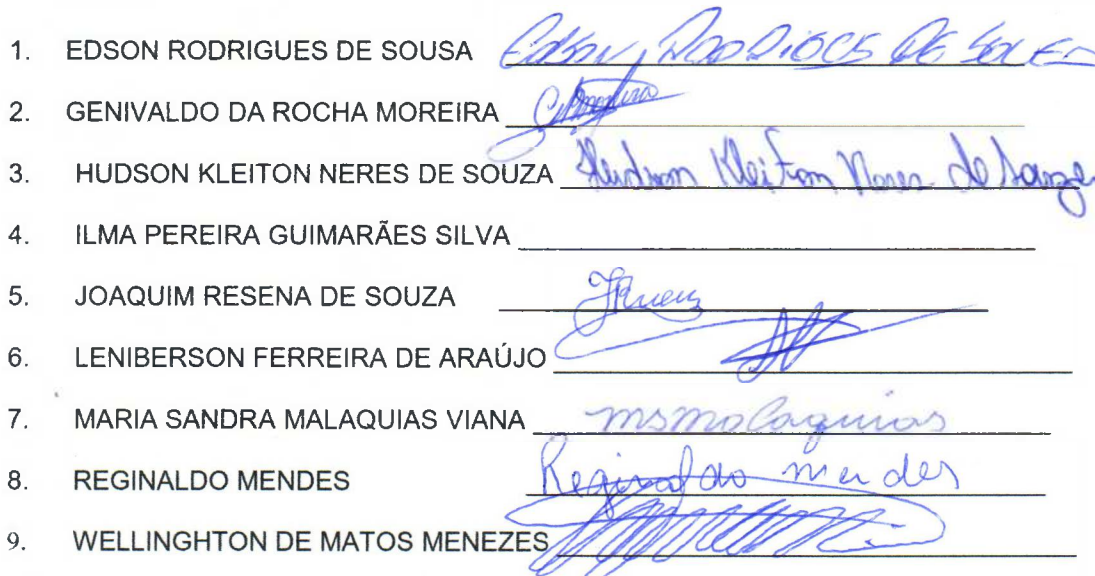 1. EDSON RODRIGUES DE SOUSA Edson Rodrigues de Sousa
2. GENIVALDO DA ROCHA MOREIRA
3. HUDSON KLEITON NERES DE SOUZA Hudson Kleiton Neres de Souza
4. ILMA PEREIRA GUIMARÃES SILVA
5. JOAQUIM RESENA DE SOUZA
6. LENIBERSON FERREIRA DE ARAÚJO
7. MARIA SANDRA MALAQUIAS VIANA msmalaquias
8. REGINALDO MENDES Reginaldo mendes
9. WELLINGHTON DE MATOS MENEZES